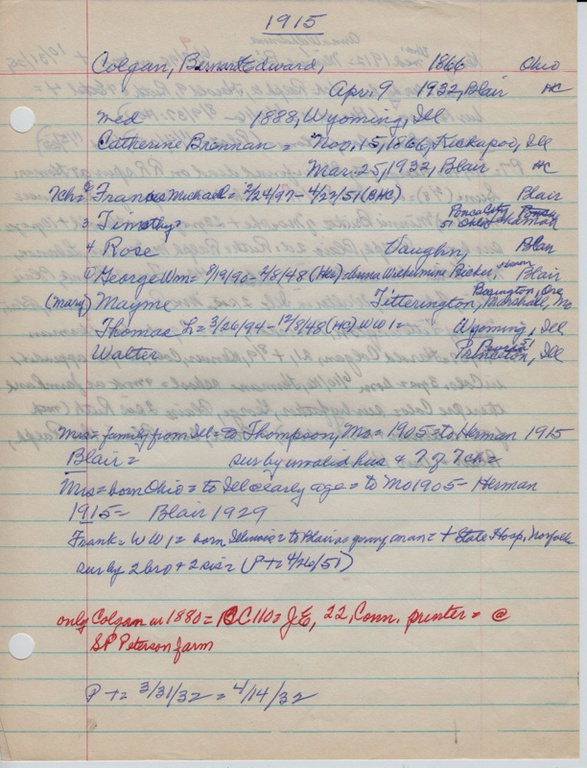 1915
Colgan, Bernard Edward, 1866 Ohio
Apr. 9 1932, Blair HC
med 1888, Wyoming, Ill
Catherine Brennan = Nov, 15, 1866, Kickapoo, Ill
Mar. 25, 1932, Blair HC
7ch = Francis Michael = 2/24/97 - 4/23/51 (BHC) Blair
3 Timothy Ponca City, Okla
4 Rose Vaughn, Blair
George Wm = 8/19/90 - 2/8/48 (HC) Anna Wilhemine Blair
(Mary) Mayme Titterington, Marshall, Mo
Thomas L = 3/26/94 - 12/8/48 (HC) WW1 = Wyoming, Ill
Walter Princeton, Ill
Mrs = family from Ill = to Thompson, Mo = 1905 = to Herman 1915
Blair = sur by invalid hus & 7 of 7ch =
Mrs = born Ohio = to Ill early age = to Mo 1905 - Herman
1915 = Blair 1929
Frank = WW1 = born Illinois = to Blair as young man = + State Hosp, Norfolk
sur by 2 bro + 2 sis = (P+ = 4/26/51)
only Colgan in 1880 = BC 110 = J.E, 22, Conn. printer = @
S P Peterson farm
P+ = 3/31/32 = 4/14/32